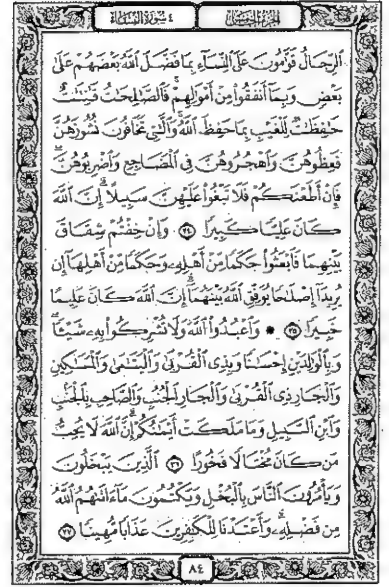 الجزء الخامس ٤ سورة النساء
ٱلرِّجَالُ قَوَّٰمُونَ عَلَى ٱلنِّسَآءِ بِمَا فَضَّلَ ٱللَّهُ بَعۡضَهُمۡ عَلَىٰ
بَعۡضٖ وَبِمَآ أَنفَقُواْ مِنۡ أَمۡوَٰلِهِمۡۚ فَٱلصَّٰلِحَٰتُ قَٰنِتَٰتٌ
حَٰفِظَٰتٞ لِّلۡغَيۡبِ بِمَا حَفِظَ ٱللَّهُۚ وَٱلَّٰتِي تَخَافُونَ نُشُوزَهُنَّ
فَعِظُوهُنَّ وَٱهۡجُرُوهُنَّ فِي ٱلۡمَضَاجِعِ وَٱضۡرِبُوهُنَّۖ
فَإِنۡ أَطَعۡنَكُمۡ فَلَا تَبۡغُواْ عَلَيۡهِنَّ سَبِيلًاۗ إِنَّ ٱللَّهَ
كَانَ عَلِيّٗا كَبِيرٗا ٣٤ وَإِنۡ خِفۡتُمۡ شِقَاقَ
بَيۡنِهِمَا فَٱبۡعَثُواْ حَكَمٗا مِّنۡ أَهۡلِهِۦ وَحَكَمٗا مِّنۡ أَهۡلِهَآ إِن
يُرِيدَآ إِصۡلَٰحٗا يُوَفِّقِ ٱللَّهُ بَيۡنَهُمَآۗ إِنَّ ٱللَّهَ كَانَ عَلِيمًا
خَبِيرٗا ٣٥ ۞ وَٱعۡبُدُواْ ٱللَّهَ وَلَا تُشۡرِكُواْ بِهِۦ شَيۡـٔٗاۖ
وَبِٱلۡوَٰلِدَيۡنِ إِحۡسَٰنٗا وَبِذِي ٱلۡقُرۡبَىٰ وَٱلۡيَتَٰمَىٰ وَٱلۡمَسَٰكِينِ
وَٱلۡجَارِ ذِي ٱلۡقُرۡبَىٰ وَٱلۡجَارِ ٱلۡجُنُبِ وَٱلصَّاحِبِ بِٱلۡجَنۢبِ
وَٱبۡنِ ٱلسَّبِيلِ وَمَا مَلَكَتۡ أَيۡمَٰنُكُمۡۗ إِنَّ ٱللَّهَ لَا يُحِبُّ
مَن كَانَ مُخۡتَالٗا فَخُورًا ٣٦ ٱلَّذِينَ يَبۡخَلُونَ
وَيَأۡمُرُونَ ٱلنَّاسَ بِٱلۡبُخۡلِ وَيَكۡتُمُونَ مَآ ءَاتَىٰهُمُ ٱللَّهُ
مِن فَضۡلِهِۦۗ وَأَعۡتَدۡنَا لِلۡكَٰفِرِينَ عَذَابٗا مُّهِينٗا ٣٧
٨٤